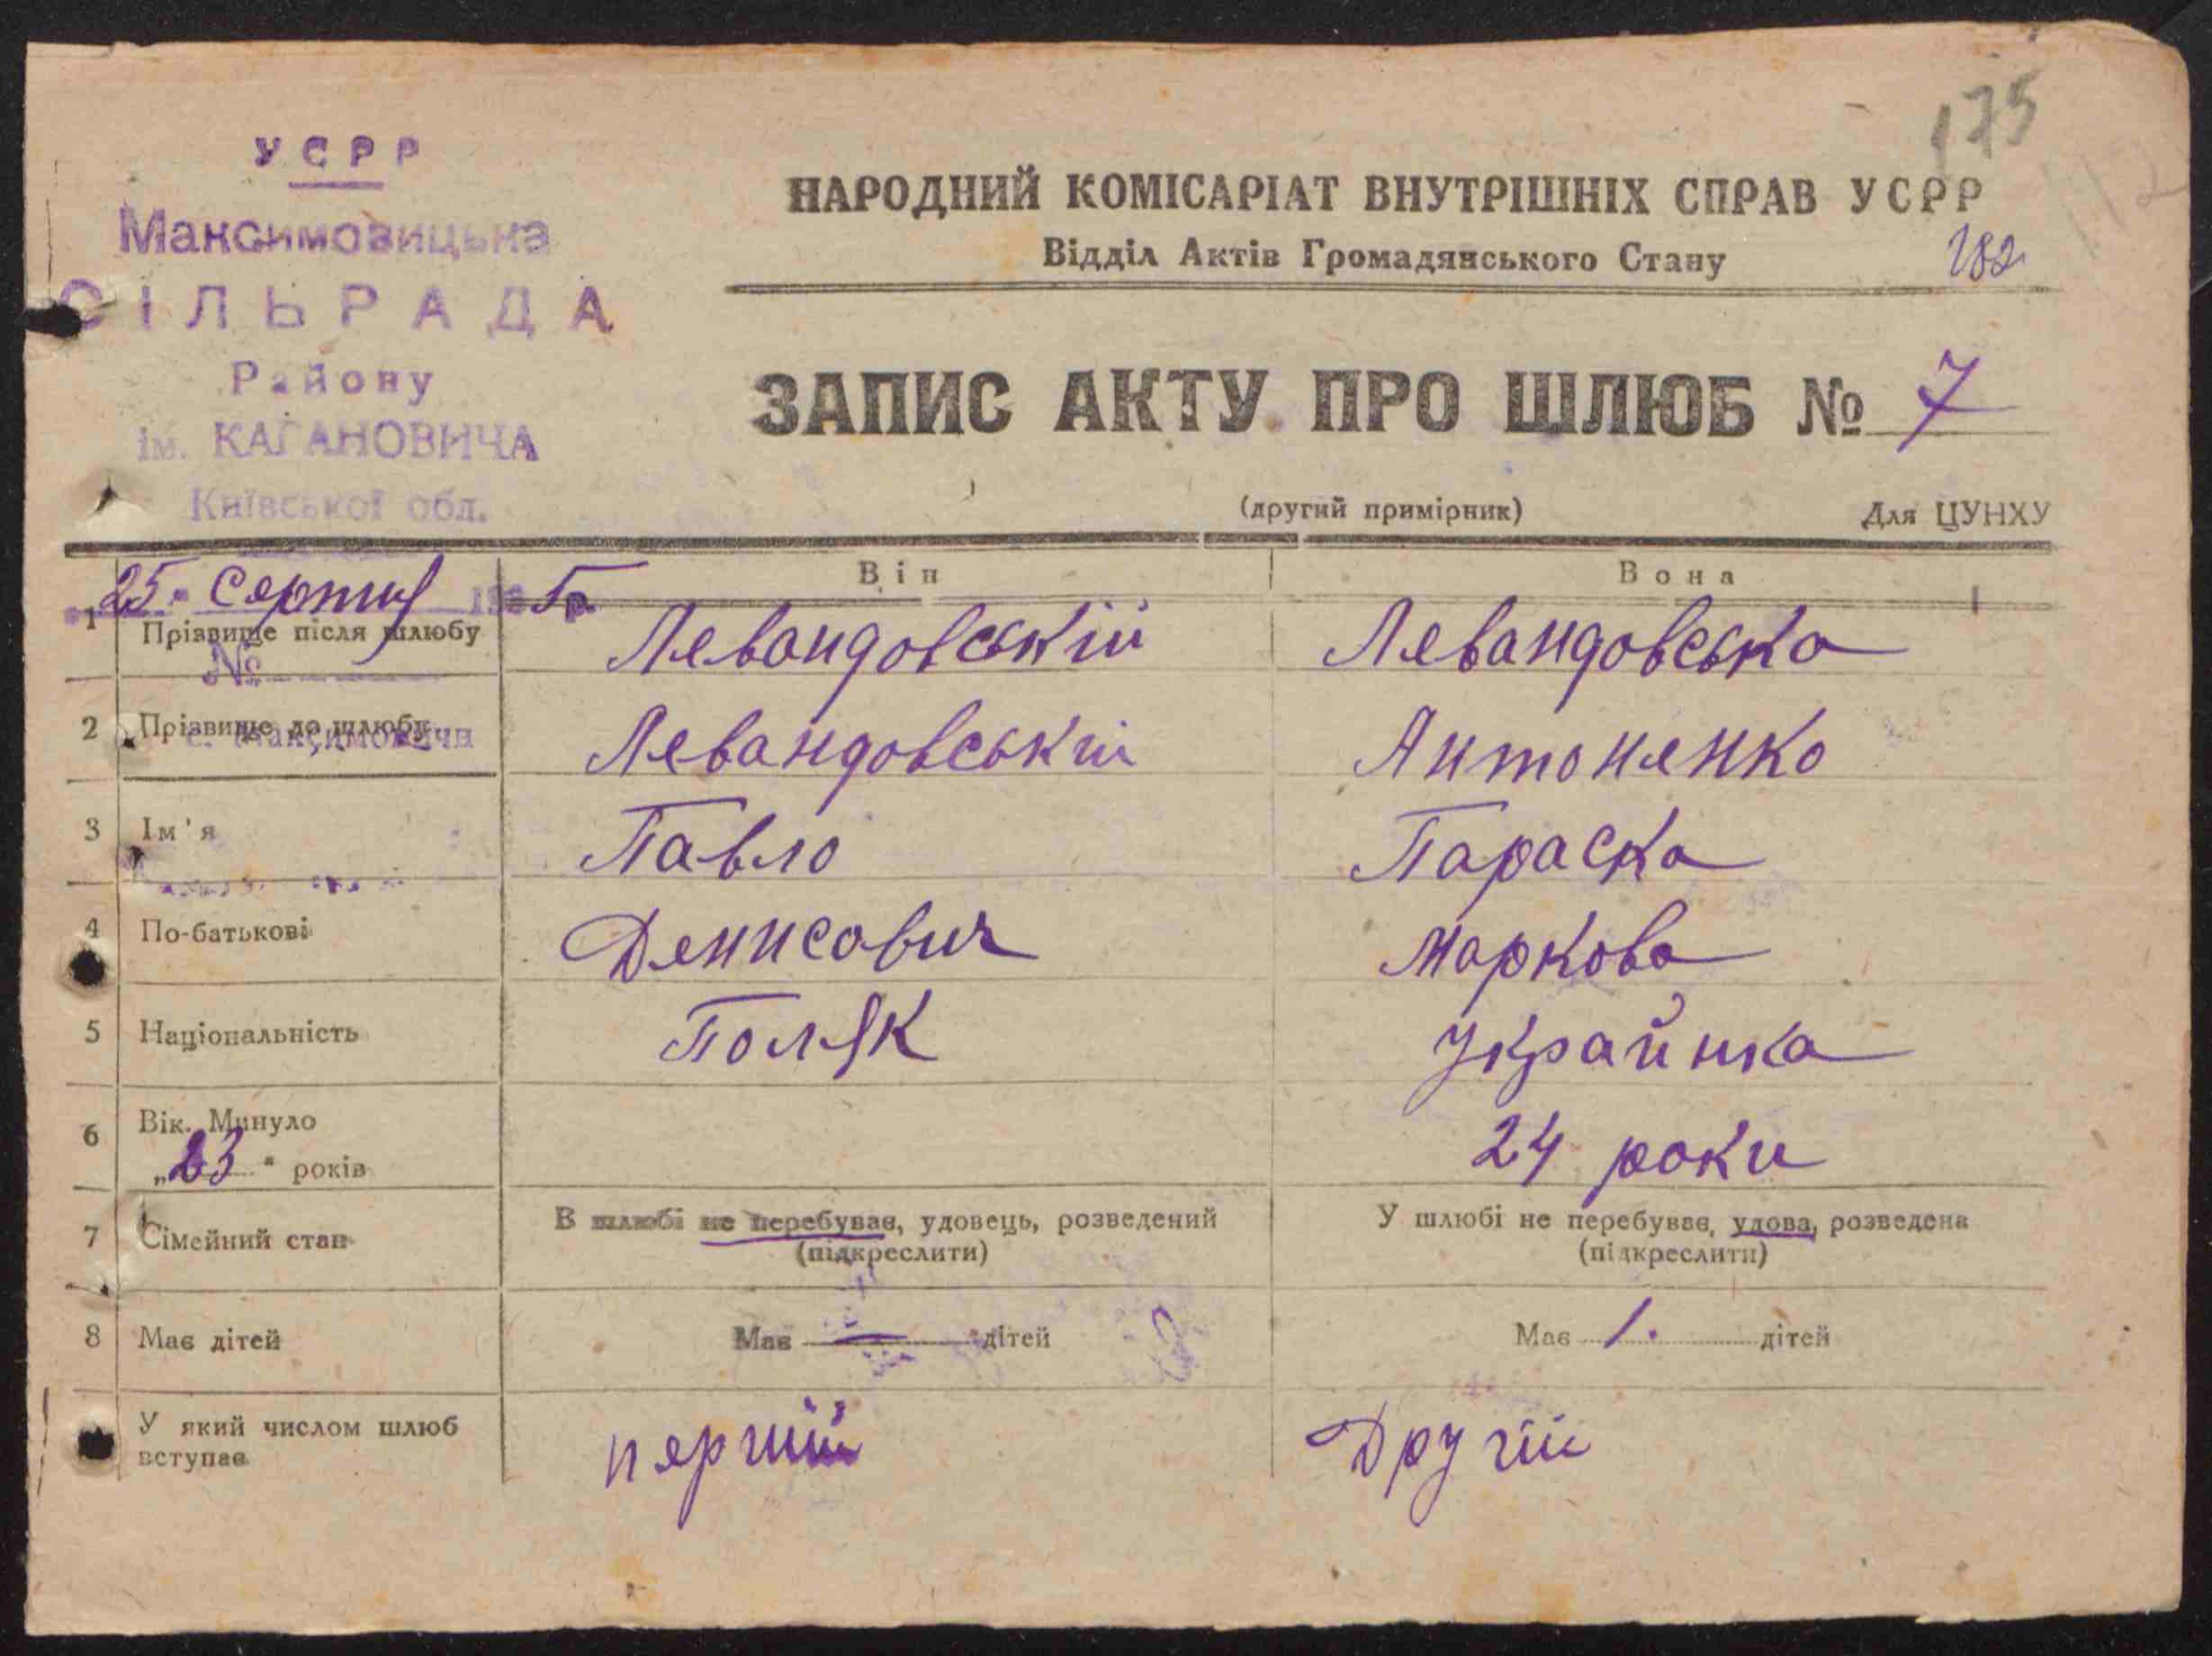 175
УСРР
Максимовицька
СІЛЬРАДА
Району
ім. КАГАНОВИЧА
Київської обл.
25 серпня 193 5 р.
№
с. Максимовичи
НАРОДНИЙ КОМІСАРІАТ ВНУТРІШНІХ СПРАВ УСРР
Відділ Актів Громадянського Стану
182
ЗАПИС АКТУ ПРО ШЛЮБ № 7
(другий примірник) Для ЦУНХУ
Він Вона
1 Прізвище після шлюбу Левандовській Левандовська
2 Прізвище до шлюбу Левандовській Антоненко
3 Ім'я Павло Параска
4 По-батькові Денисович Маркова
5 Національність Поляк Украйнка
6 Вік. Минуло 24 роки
„23" років
7 Сімейний стан В шлюбі не перебуває, удовець, розведений У шлюбі не перебуває, удова, розведена
(підкреслити) (підкреслити)
8 Має дітей Має — дітей Має 1. дітей
У який числом шлюб
вступає перший Другій